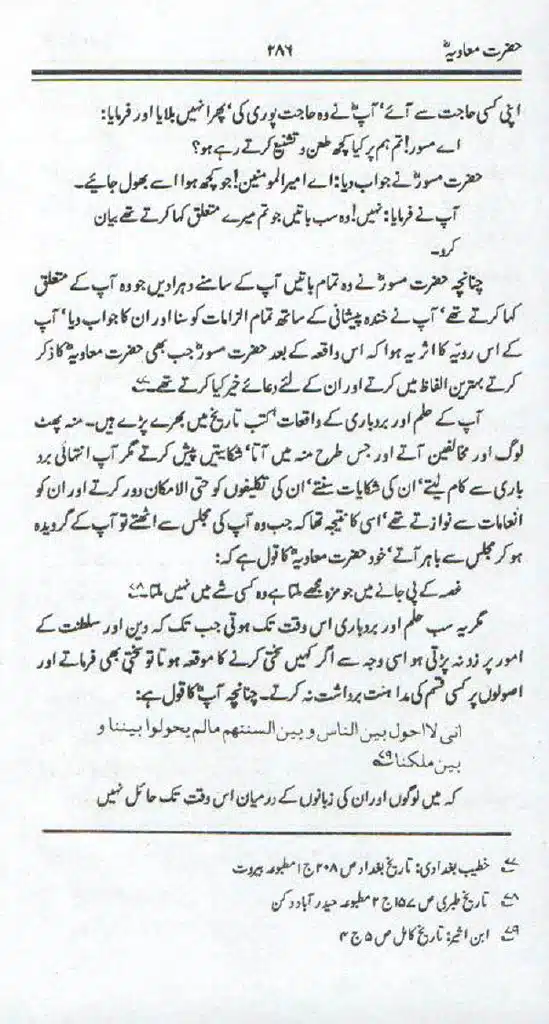 حضرت معاویہؓ
۲۸۶
اپنی کسی حاجت سے آئے، آپؓ نے وہ حاجت پوری کی، پھر انہیں بلایا اور فرمایا:
اے مسور! تم ہم پر کیا کچھ طعن و تشنیع کرتے رہے ہو؟
حضرت مسورؓ نے جواب دیا: اے امیر المومنین! جو کچھ ہوا اسے بھول جائیے۔
آپ نے فرمایا: نہیں! وہ سب باتیں جو تم میرے متعلق کہا کرتے تھے بیان
کرو۔
چنانچہ حضرت مسورؓ نے وہ تمام باتیں آپ کے سامنے دہرادیں جو وہ آپ کے متعلق
کہا کرتے تھے، آپ نے خندہ پیشانی کے ساتھ تمام الزامات کو سنا اور ان کا جواب دیا، آپ
کے اس رویّہ کا اثر یہ ہوا کہ اس واقعہ کے بعد حضرت مسورؓ جب بھی حضرت معاویہؓ کا ذکر
کرتے بہترین الفاظ میں کرتے اور ان کے لئے دعائے خیر کیا کرتے تھے۔ ۷۷
آپ کے حلم اور بردباری کے واقعات، کتب تاریخ میں بھرے پڑے ہیں۔ منہ پھٹ
لوگ اور مخالفین آتے اور جس طرح منہ میں آتا، شکایتیں پیش کرتے مگر آپ انتہائی برد
باری سے کام لیتے، ان کی شکایات سنتے، ان کی تکلیفوں کو حتی الامکان دور کرتے اور ان کو
انعامات سے نوازتے تھے، اسی کا نتیجہ تھا کہ جب وہ آپ کی مجلس سے اٹھتے تو آپ کے گرویدہ
ہو کر مجلس سے باہر آتے، خود حضرت معاویہؓ کا قول ہے کہ:
غصہ کے پی جانے میں جو مزہ مجھے ملتا ہے وہ کسی شے میں نہیں ملتا۔ ۷۸
مگر یہ سب حلم اور بردباری اس وقت تک ہوتی جب تک کہ دین اور سلطنت کے
امور پر زد نہ پڑتی ہو اسی وجہ سے اگر کہیں سختی کرنے کا موقعہ ہوتا تو سختی بھی فرماتے اور
اصولوں پر کسی قسم کی مداہنت برداشت نہ کرتے۔ چنانچہ آپؓ کا قول ہے:
انی لا احول بین الناس و بین السنتھم مالم یحولوا بیننا و
بین ملکنا ۷۹
کہ میں لوگوں اور ان کی زبانوں کے درمیان اس وقت تک حائل نہیں
۷۷ خطیب بغدادی: تاریخ بغداد ص ۲۰۸ ج ۱ مطبوعہ بیروت
۷۸ تاریخ طبری ص ۱۵۷ ج ۲ مطبوعہ حیدر آباد دکن
۷۹ ابن اثیر: تاریخ کامل ص ۵ ج ۴